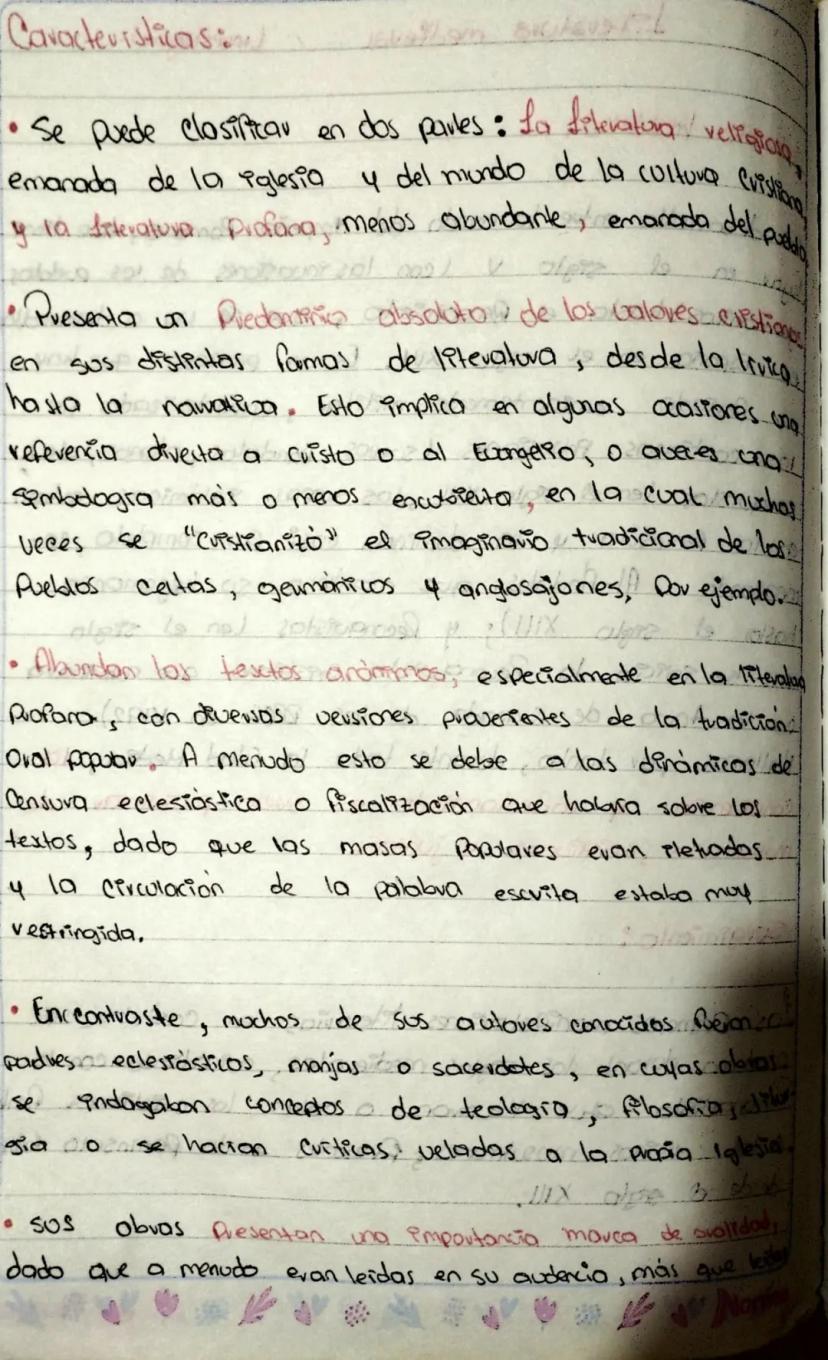 Características:
• Se puede clasificar en dos partes: La literatura religiosa,
emanada de la iglesia y del mundo de la cultura cristiana,
y la literatura profana, menos abundante, emanada del pueblo
• Presenta un Predominio absoluto de los valores cristianos
en sus distintas formas de literatura, desde la lírica
hasta la narrativa. Esto implica en algunas ocasiones una
referencia directa a cristo o al Evangelio, o aveces una
simbología más o menos encubierta, en la cual muchas
veces se "cristianizó" el imaginario tradicional de los
Pueblos celtas, germánicos y anglosajones, Por ejemplo.
• Abundan los textos anónimos, especialmente en la literatura
Profana, con diversas versiones provenientes de la tradición
Oral popular. A menudo esto se debe a las dinámicas de
Censura eclesiástica o fiscalización que había sobre los
textos, dado que las masas Populares eran iletradas
y la circulación de la palabra escrita estaba muy
restringida.
• En contraste, muchos de sus autores conocidos fueron
padres eclesiásticos, monjas o sacerdotes, en cuyas obras
se indagaban conceptos de teología, filosofía, litur
gia o se hacían críticas veladas a la propia Iglesia.
• sus obras Presentan una importancia marca de oralidad,
dado que a menudo eran leídas en su audencia, más que leídas
Norma